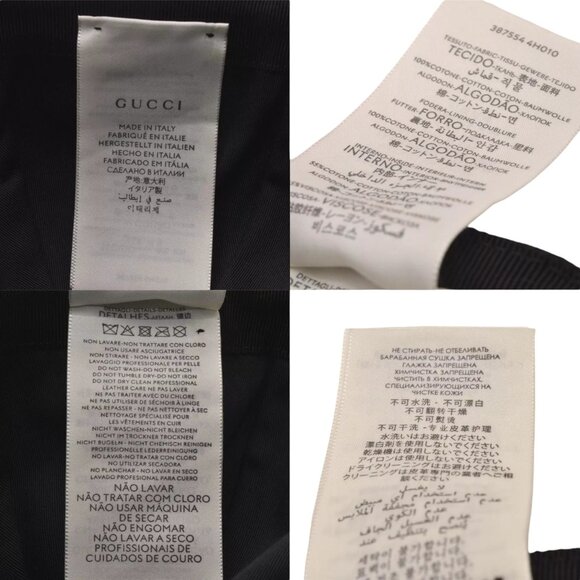 GUCCI
MADE IN ITALY
FABRIQUÉ EN ITALIE
HERGESTELLT IN ITALIEN
HECHO EN ITALIA
FABRICADO EM ITÁLIA
СДЕЛАНО В ИТАЛИИ
产地:意大利
イタリア製
صنع في إيطاليا
이태리제
387554 4H010
TESSUTO-FABRIC-TISSU-GEWEBE-TEJIDO
TECIDO-ТКАНЬ-表地-面料
قماش-직물
100%COTONE-COTTON-COTON-BAUMWOLLE
ALGODON-ALGODÃO-ХЛОПОК
棉-コットン-قطن-면
FODERA-LINING-DOUBLURE
FUTTER-FORRO-ПОДКЛАДКА-里料
裏地-البطانة-안감
100%COTONE-COTTON-COTON-BAUMWOLLE
ALGODON-ALGODÃO-ХЛОПОК
棉-コットン-قطن-면
INTERNO-INSIDE-INTERIEUR-INTERN
INTERIOR-INTERNO
内部
55%COTONE-COTTON-COTON-BAUMWOLLE
VISCOSE
비스코스
DETTAGLI-DETAILS-DETAILLES
DETALHES
NON LAVARE-NON TRATTARE CON CLORO
NON USARE ASCIUGATRICE
NON STIRARE - NON LAVARE A SECCO
LAVAGGIO PROFESSIONALE PER PELLE
DO NOT WASH-DO NOT BLEACH
DO NOT TUMBLE DRY-DO NOT IRON
DO NOT DRY CLEAN PROFESSIONAL
LEATHER CARE NE PAS LAVER
NE PAS TRAITER AVEC DU CHLORE
NE PAS UTILISER DE SÉCHOIR À LINGE
NE PAS REPASSER - NE PAS NETTOYER À SEC
NETTOYAGE SPÉCIALISÉ POUR
LES VÊTEMENTS EN CUIR
NICHT WASCHEN-NICHT BLEICHEN
NICHT IM TROCKNER TROCKNEN
NICHT BUGELN - NICHT CHEMISCH REINIGEN
PROFESSIONELLE LEDERREINIGUNG
NO LAVAR-NO TRATAR CON CLORO
NO UTILIZAR SECADORA
NO PLANCHAR - NO LAVAR EN SECO
LAVADO PROFESIONAL PARA CUERO
NÃO LAVAR
NÃO TRATAR COM CLORO
NÃO USAR MÁQUINA
DE SECAR
NÃO ENGOMAR
NÃO LAVAR A SECO
PROFISSIONAIS DE
CUIDADOS DE COURO
НЕ СТИРАТЬ-НЕ ОТБЕЛИВАТЬ
БАРАБАННАЯ СУШКА ЗАПРЕЩЕНА
ГЛАЖКА ЗАПРЕЩЕНА
ХИМЧИСТКА ЗАПРЕЩЕНА
ЧИСТИТЬ В ХИМЧИСТКАХ,
СПЕЦИАЛИЗИРУЮЩИХСЯ НА
ЧИСТКЕ КОЖИ
不可水洗-不可漂白
不可翻转干燥
不可熨烫
不可干洗-专业皮革护理
水洗いはお避けください
漂白剤を使用しないでください
乾燥機は使用しないでください
アイロンは使用しないでください
ドライクリーニングはお避けください
クリーニングは皮革専門の業者へご相
談ください